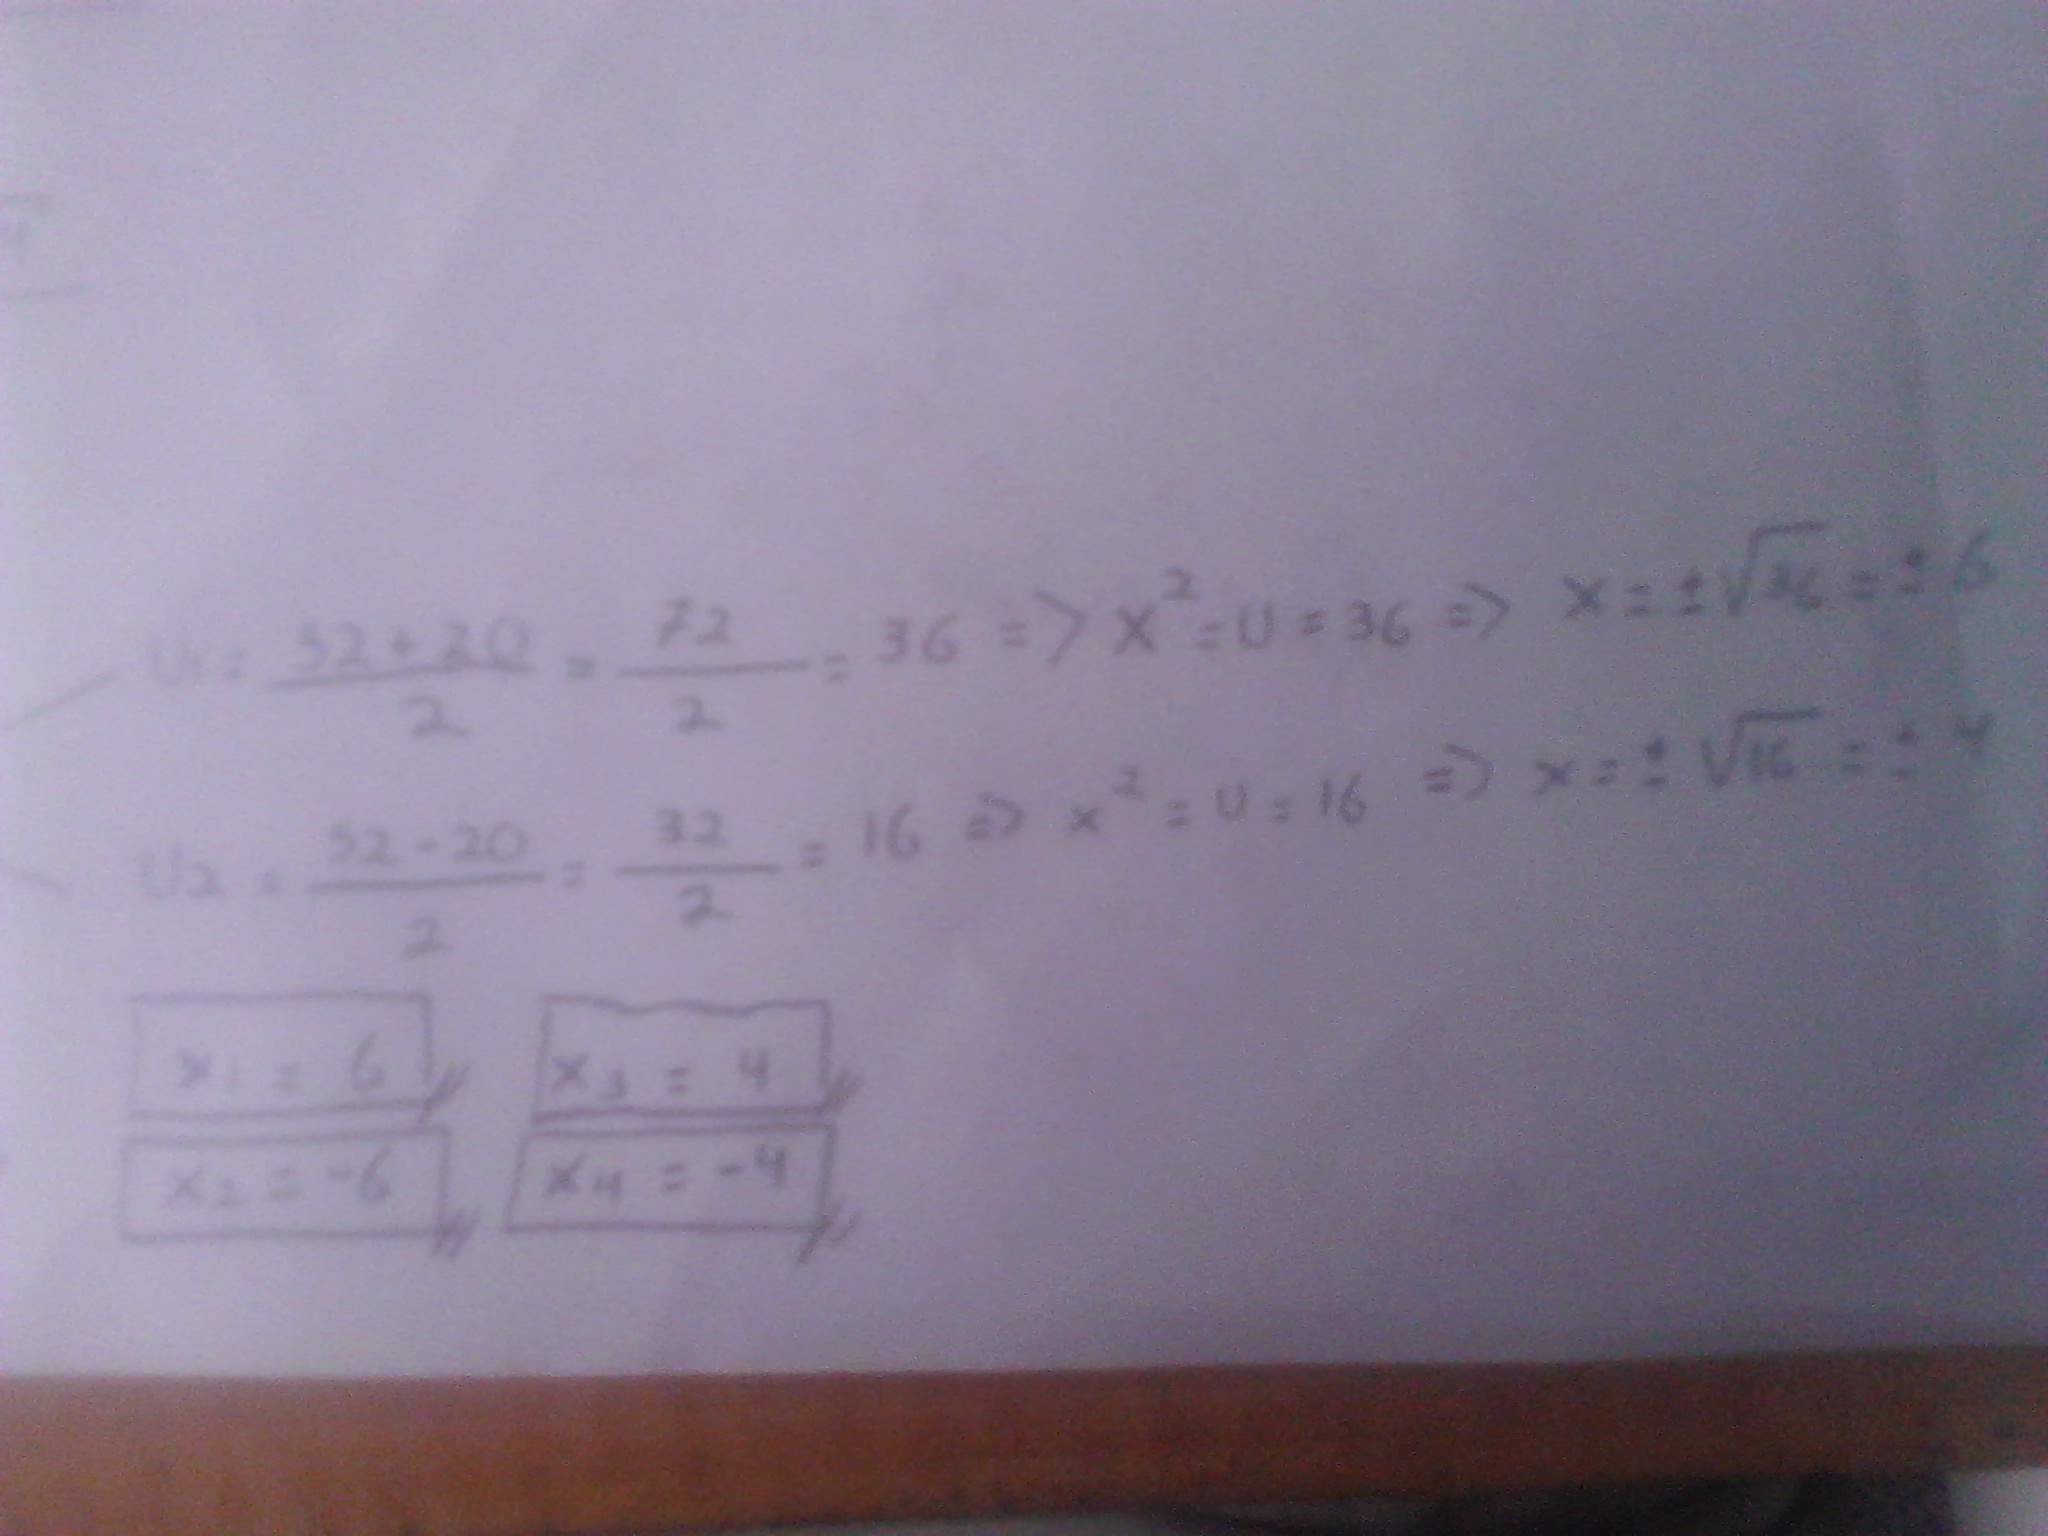 U1 = 52 + 20 / 2 = 72 / 2 = 36 => X² = U = 36 => X = ± √36 = ± 6
U2 = 52 - 20 / 2 = 32 / 2 = 16 => x² = U = 16 => x = ± √16 = ± 4
x1 = 6 x3 = 4
x2 = -6 x4 = -4